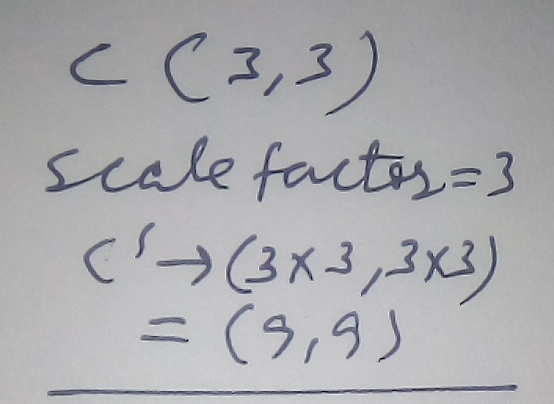 C (3,3)
scale factor=3
C' → (3×3,3×3)
= (9,9)